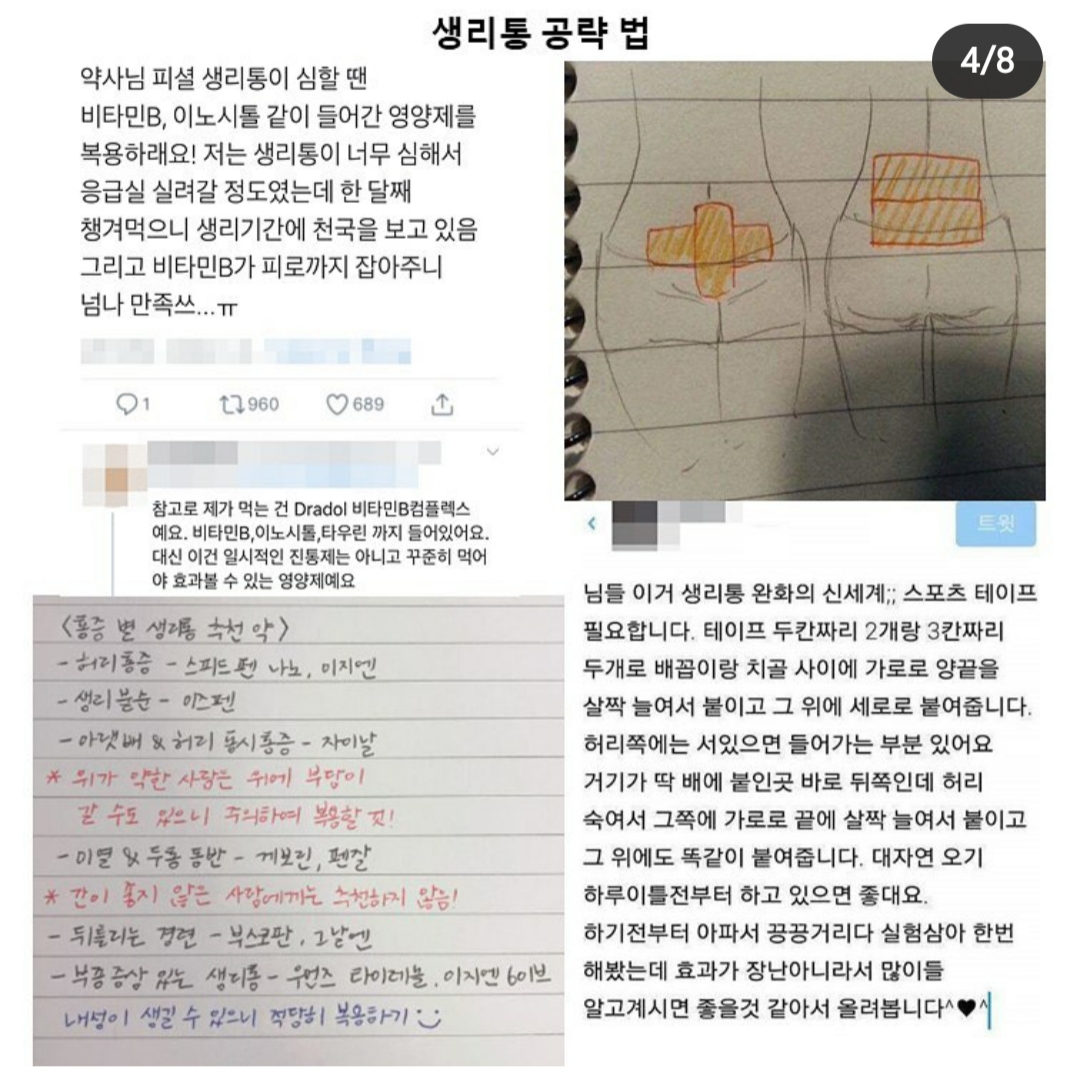 생리통 공략 법
4/8
약사님 피셜 생리통이 심할 땐
비타민B, 이노시톨 같이 들어간 영양제를
복용하래요! 저는 생리통이 너무 심해서
응급실 실려갈 정도였는데 한 달째
챙겨먹으니 생리기간에 천국을 보고 있음
그리고 비타민B가 피로까지 잡아주니
넘나 만족쓰...ㅠ
1 960 689
참고로 제가 먹는 건 Dradol 비타민B컴플렉스
예요. 비타민B,이노시톨,타우린 까지 들어있어요.
대신 이건 일시적인 진통제는 아니고 꾸준히 먹어
야 효과볼 수 있는 영양제예요
<통증 별 생리통 추천 약>
- 허리통증 - 스피드펜 나노, 이지엔
- 생리불순 - 이즈펜
- 아랫배 & 허리 동시통증 - 자이날
* 위가 약한 사람은 위에 부담이
갈 수도 있으니 주의하여 복용할 것!
- 미열 & 두통 동반 - 게보린, 펜잘
* 간이 좋지 않은 사람에게는 추천하지 않음!
- 뒤틀리는 경련 - 부스코판, 그날엔
- 부종증상 있는 생리통 - 우먼즈 타이레놀, 이지엔 6이브
내성이 생길 수 있으니 적당히 복용하기
트윗
님들 이거 생리통 완화의 신세계;; 스포츠 테이프
필요합니다. 테이프 두칸짜리 2개랑 3칸짜리
두개로 배꼽이랑 치골 사이에 가로로 양끝을
살짝 늘여서 붙이고 그 위에 세로로 붙여줍니다.
허리쪽에는 서있으면 들어가는 부분 있어요
거기가 딱 배에 붙인곳 바로 뒤쪽인데 허리
숙여서 그쪽에 가로로 끝에 살짝 늘여서 붙이고
그 위에도 똑같이 붙여줍니다. 대자연 오기
하루이틀전부터 하고 있으면 좋대요.
하기전부터 아파서 끙끙거리다 실험삼아 한번
해봤는데 효과가 장난아니라서 많이들
알고계시면 좋을것 같아서 올려봅니다^♥^